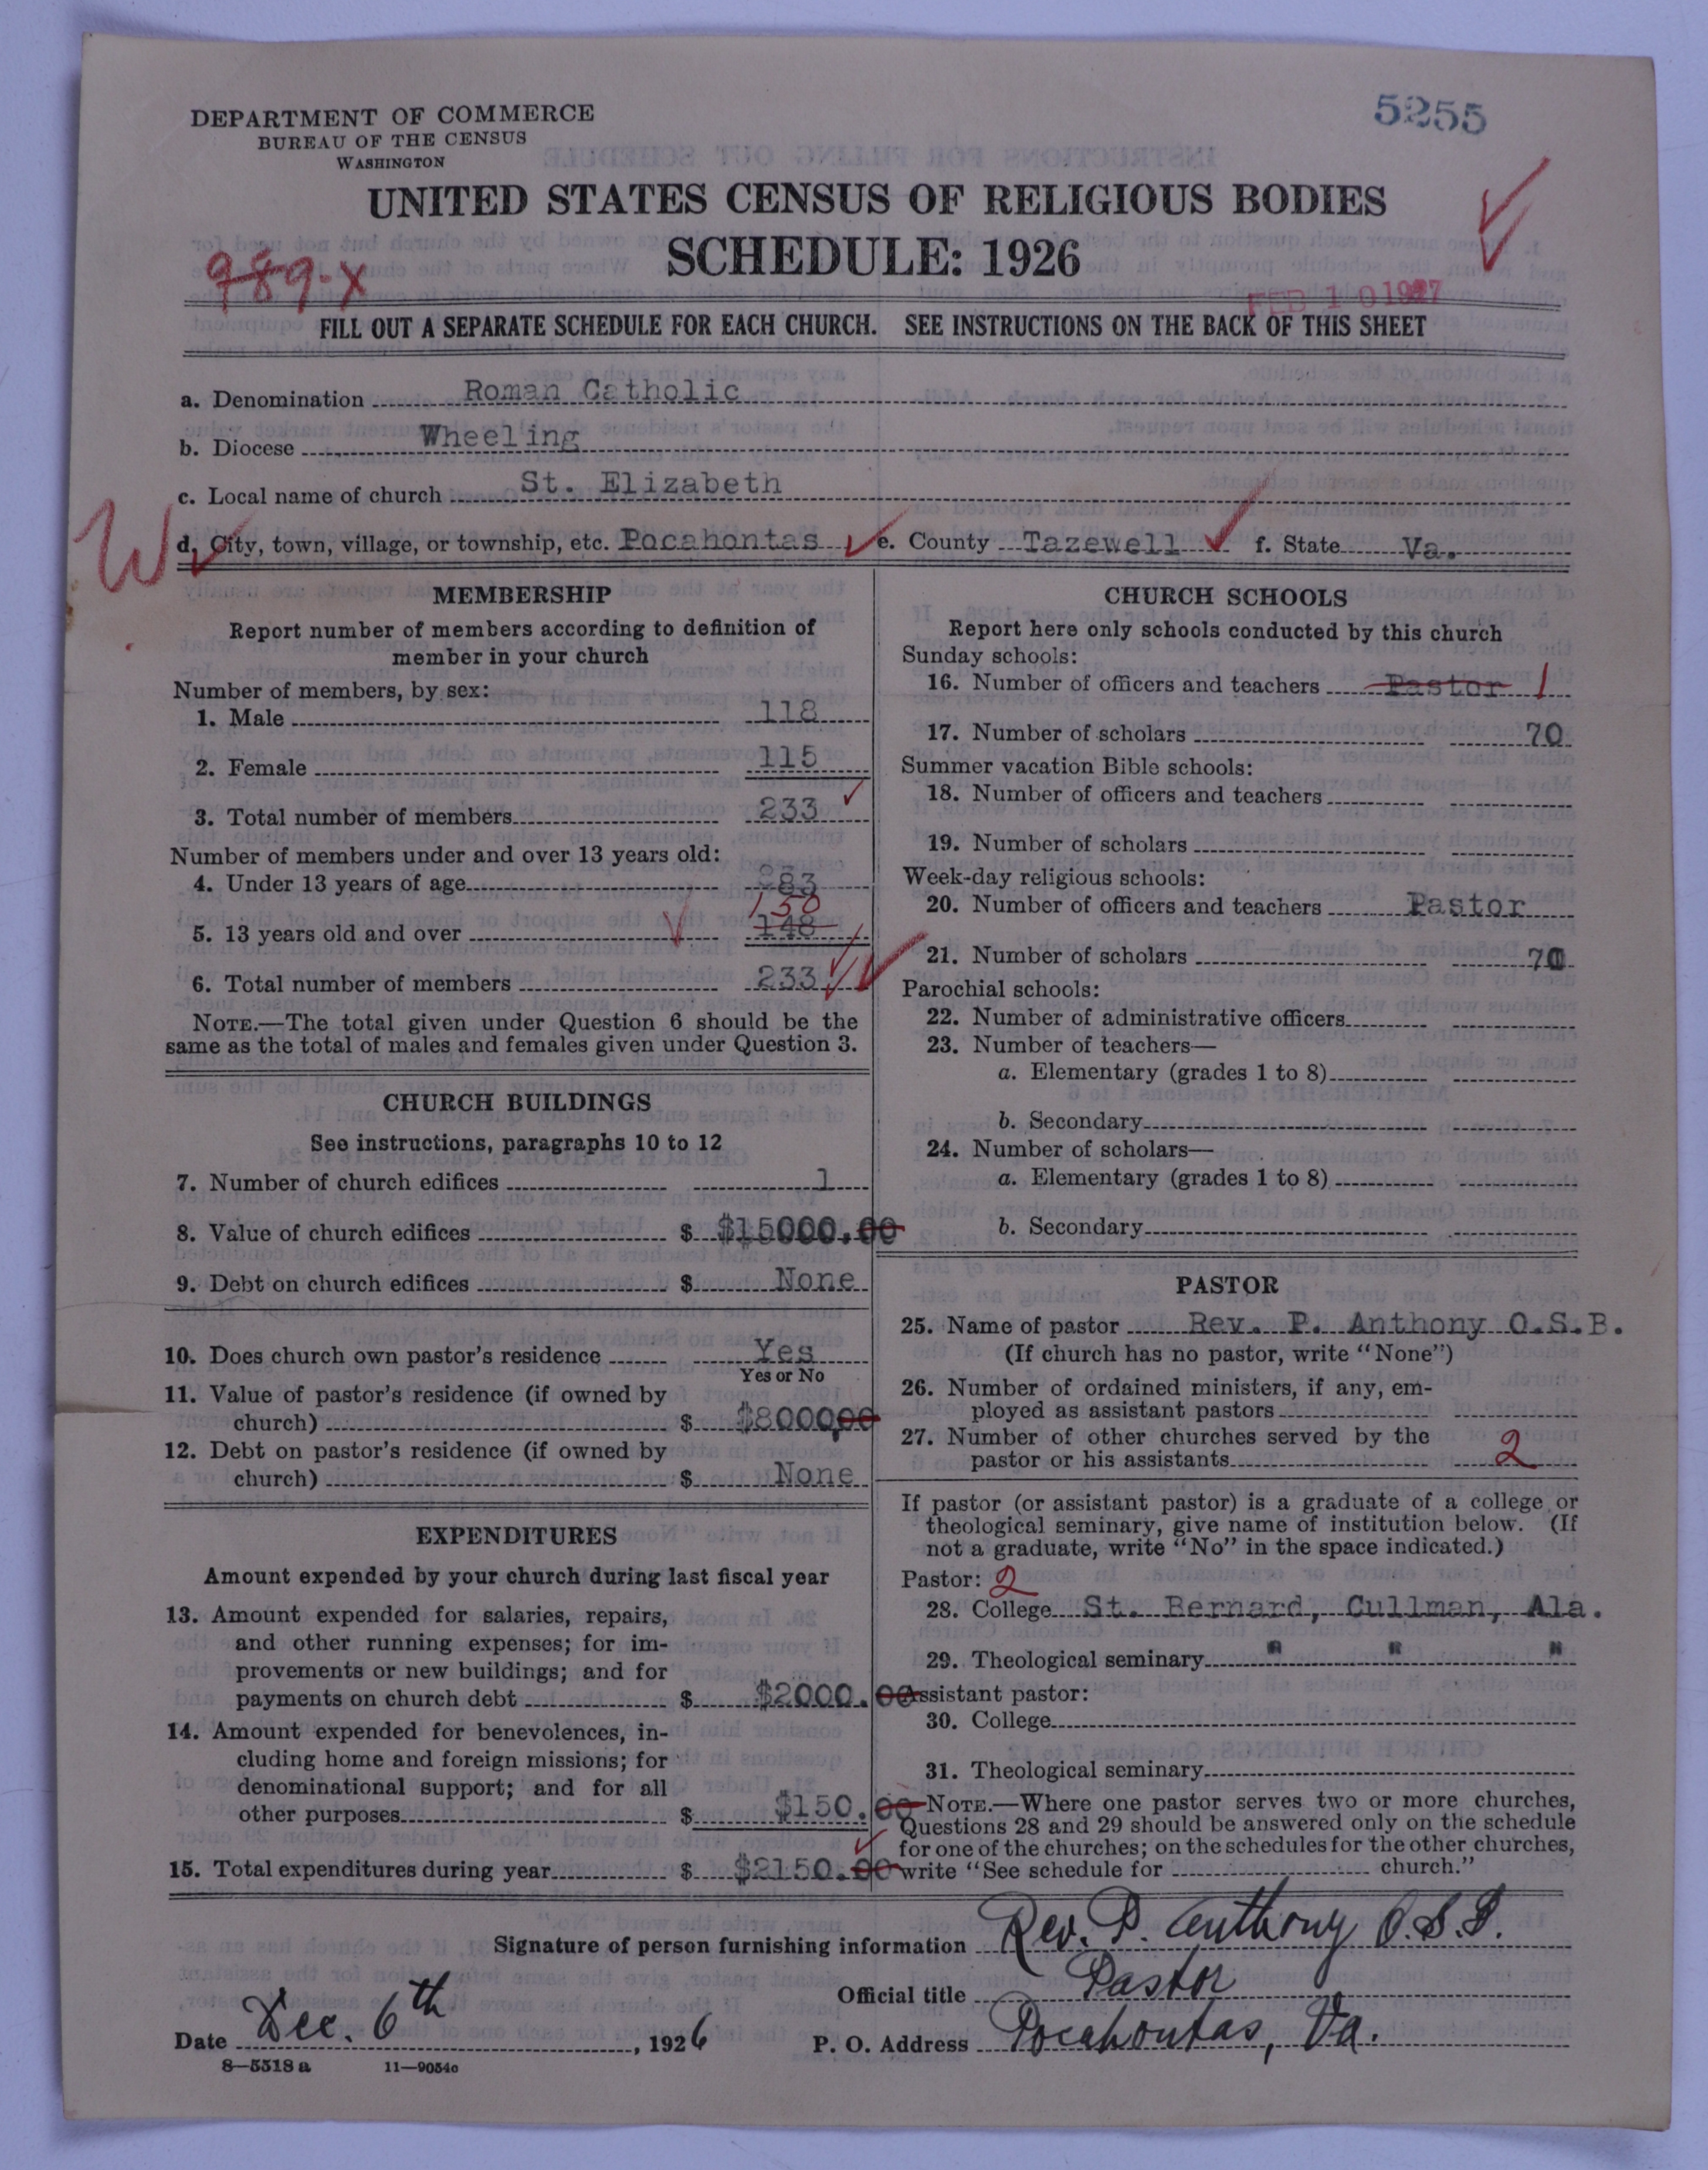 5255
DEPARTMENT OF COMMERCE
BUREAU OF THE CENSUS
WASHINGTON
UNITED STATES CENSUS OF RELIGIOUS BODIES
SCHEDULE: 1926
989-X
FEB 10 1927
FILL OUT A SEPARATE SCHEDULE FOR EACH CHURCH. SEE INSTRUCTIONS ON THE BACK OF THIS SHEET
a. Denomination Roman Catholic
b. Diocese Wheeling
c. Local name of church St. Elizabeth
W
d. City, town, village, or township, etc. Pocahontas e. County Tazewell f. State Va.
MEMBERSHIP
Report number of members according to definition of
member in your church
Number of members, by sex:
1. Male 118
2. Female 115
3. Total number of members 233
Number of members under and over 13 years old:
4. Under 13 years of age 83
150
5. 13 years old and over 148
6. Total number of members 233
NOTE.—The total given under Question 6 should be the
same as the total of males and females given under Question 3.
CHURCH BUILDINGS
See instructions, paragraphs 10 to 12
7. Number of church edifices 1
8. Value of church edifices $ $15000.00
9. Debt on church edifices $ None
10. Does church own pastor's residence Yes
Yes or No
11. Value of pastor's residence (if owned by
church) $ $8000,00
12. Debt on pastor's residence (if owned by
church) $ None
EXPENDITURES
Amount expended by your church during last fiscal year
13. Amount expended for salaries, repairs,
and other running expenses; for im-
provements or new buildings; and for
payments on church debt $ $2000.00
14. Amount expended for benevolences, in-
cluding home and foreign missions; for
denominational support; and for all
other purposes $ $150.00
15. Total expenditures during year $ $2150.00
CHURCH SCHOOLS
Report here only schools conducted by this church
Sunday schools:
16. Number of officers and teachers Pastor 1
17. Number of scholars 70
Summer vacation Bible schools:
18. Number of officers and teachers
19. Number of scholars
Week-day religious schools:
20. Number of officers and teachers Pastor
21. Number of scholars 70
Parochial schools:
22. Number of administrative officers
23. Number of teachers—
a. Elementary (grades 1 to 8)
b. Secondary
24. Number of scholars—
a. Elementary (grades 1 to 8)
b. Secondary
PASTOR
25. Name of pastor Rev. P. Anthony O.S.B.
(If church has no pastor, write "None")
26. Number of ordained ministers, if any, em-
ployed as assistant pastors
27. Number of other churches served by the
pastor or his assistants 2
If pastor (or assistant pastor) is a graduate of a college or
theological seminary, give name of institution below. (If
not a graduate, write "No" in the space indicated.)
Pastor: 2
28. College St. Bernard, Cullman, Ala.
29. Theological seminary " " "
Assistant pastor:
30. College
31. Theological seminary
NOTE.—Where one pastor serves two or more churches,
Questions 28 and 29 should be answered only on the schedule
for one of the churches; on the schedules for the other churches,
write "See schedule for church."
Signature of person furnishing information Rev. P. Anthony O.S.B.
Official title Pastor
Date Dec. 6th, 1926 P. O. Address Pocahontas, Va.
8—5518 a 11—9054c